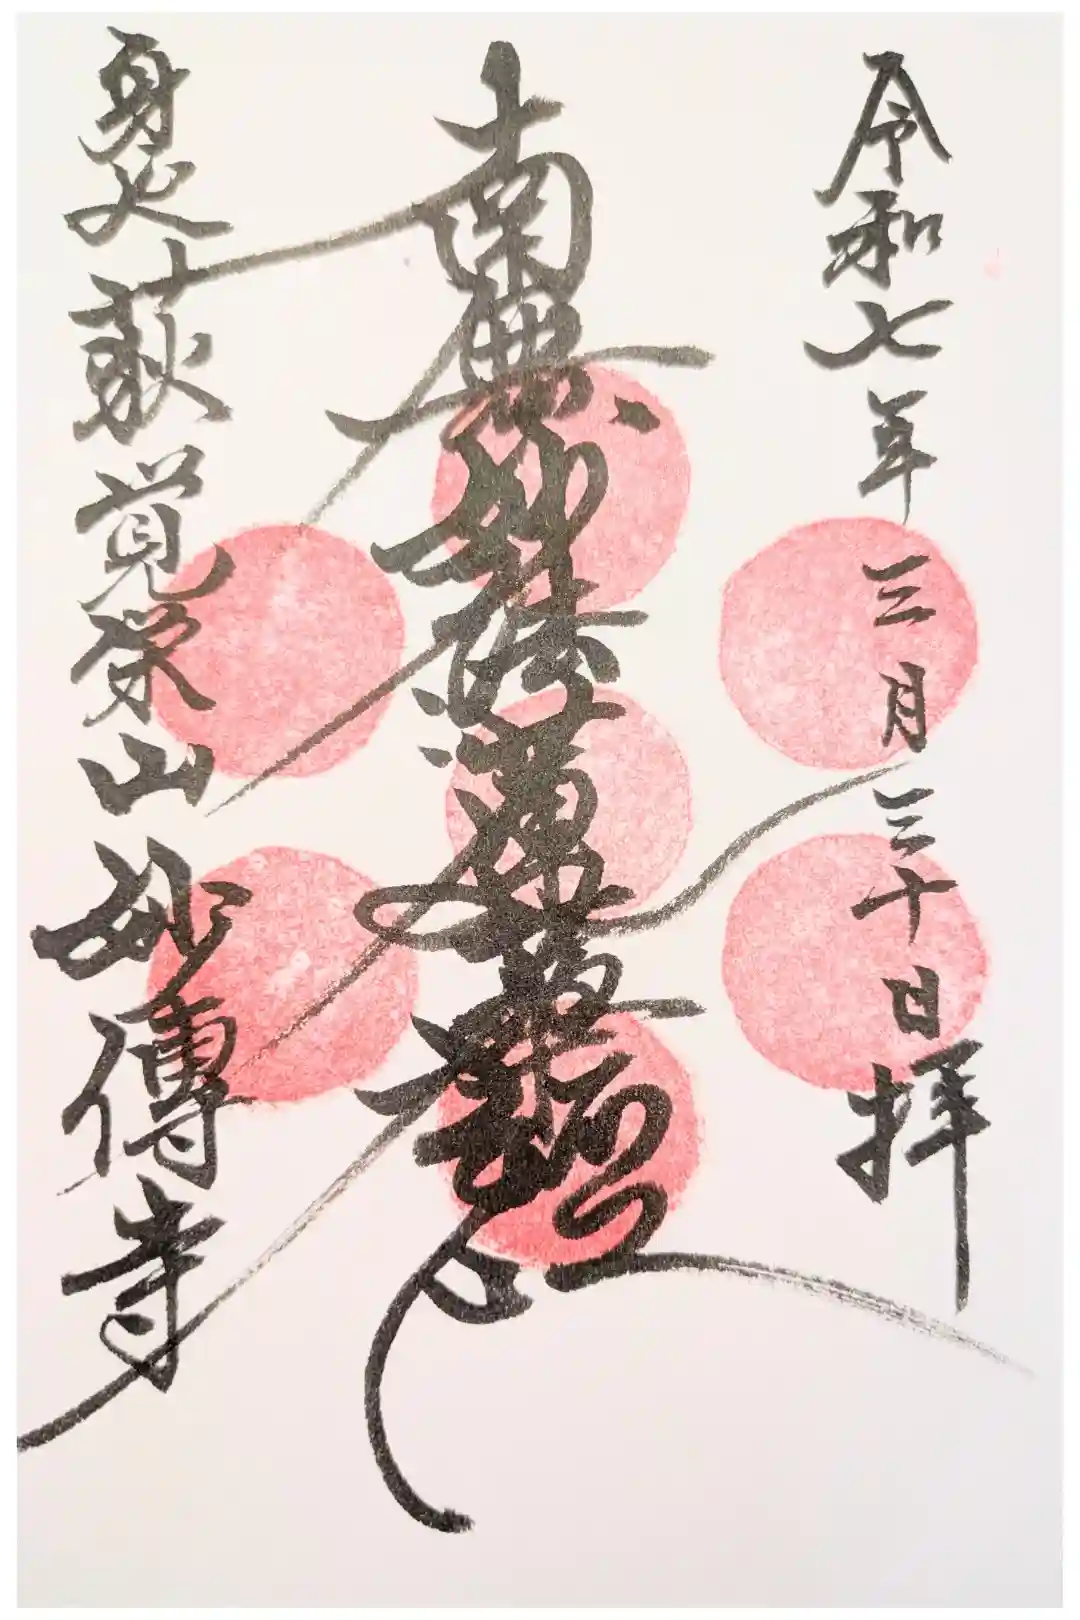 令和七年三月三十日拝
南無妙法蓮華経
覚栄山妙傳寺